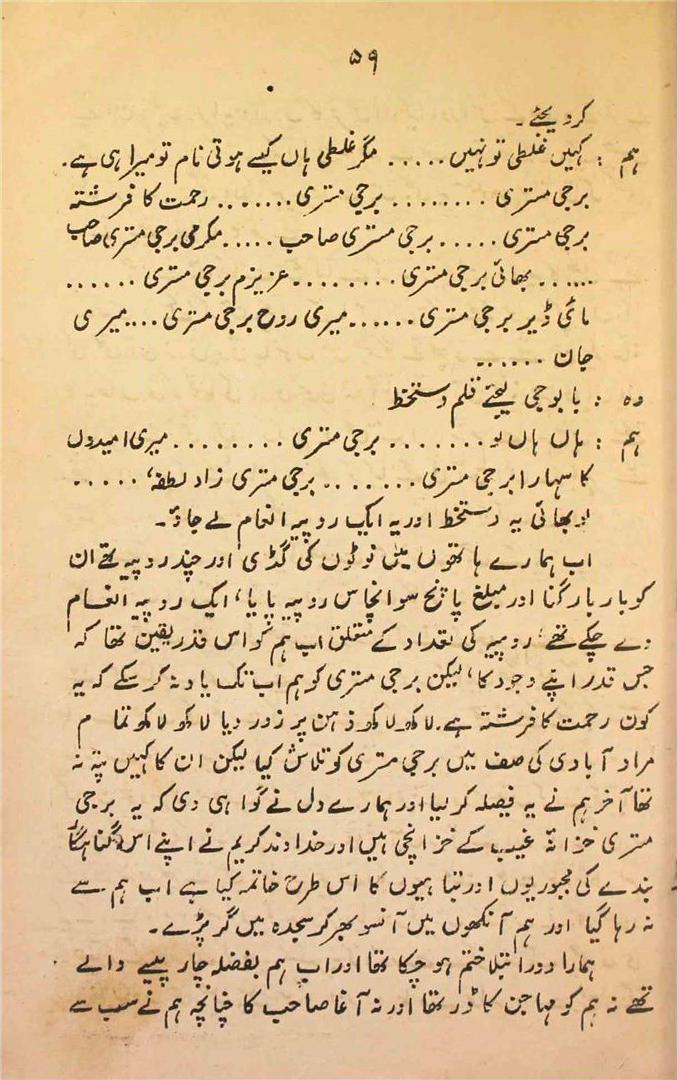 ۵۹
کر دیجئے۔
ہم : کہیں غلطی تو نہیں ..... مگر غلطی ہاں کیسے ہوتی نام تو میرا ہی ہے۔
برجی مستری ........ برجی مستری ....... رحمت کا فرشتہ
برجی مستری ..... برجی مستری صاحب ..... مکرمی برجی مستری صاحب
...... بھائی برجی مستری ........ عزیزم برجی مستری ......
مائی ڈیر برجی مستری ...... میری روح برجی مستری .... میری
جان ......۔
وہ : بابوجی لیجئے قلم دستخط
ہم : ہاں ہاں لو ....... برجی مستری ........ میری امیدوں
کا سہارا برجی مستری ....... برجی مستری زاد لطفہ، .....
لو بھائی یہ دستخط اور یہ ایک روپیہ انعام لے جاؤ۔
اب ہمارے ہاتھوں میں نوٹوں کی گڈی اور چند روپیہ تھے ان
کو بار بار گنا اور مبلغ پانچ سو انچاس روپیہ پایا، ایک روپیہ انعام
دے چکے تھے، روپیے کی تعداد کے متعلق اب ہم کو اس قدر یقین تھا کہ
جس قدر اپنے وجود کا، لیکن برجی مستری کو ہم اب تک یاد نہ کر سکے کہ یہ
کون رحمت کا فرشتہ ہے۔ لاکھ لاکھ ذہن پر زور دیا لاکھ لاکھ تمام
مراد آبادی کی صف میں برجی مستری کو تلاش کیا لیکن ان کا کہیں پتہ نہ
تھا آخر ہم نے یہ فیصلہ کر لیا اور ہمارے دل نے گواہی دی کہ یہ برجی
مستری خزانۂ غیب کے خزانچی ہیں اور خداوند کریم نے اپنے اس گناہگار
بندے کی مجبوریوں اور تباہیوں کا اس طرح خاتمہ کیا ہے اب ہم سے
نہ رہا گیا اور ہم آنکھوں میں آنسو بھر کر سجدہ میں گر پڑے۔
ہمارا دور ابتلا ختم ہو چکا تھا اور اب ہم بفضلہ چار پیسے والے
تھے نہ ہم کو مہاجن کا ڈر تھا اور نہ آغا صاحب کا چنانچہ ہم نے سب سے